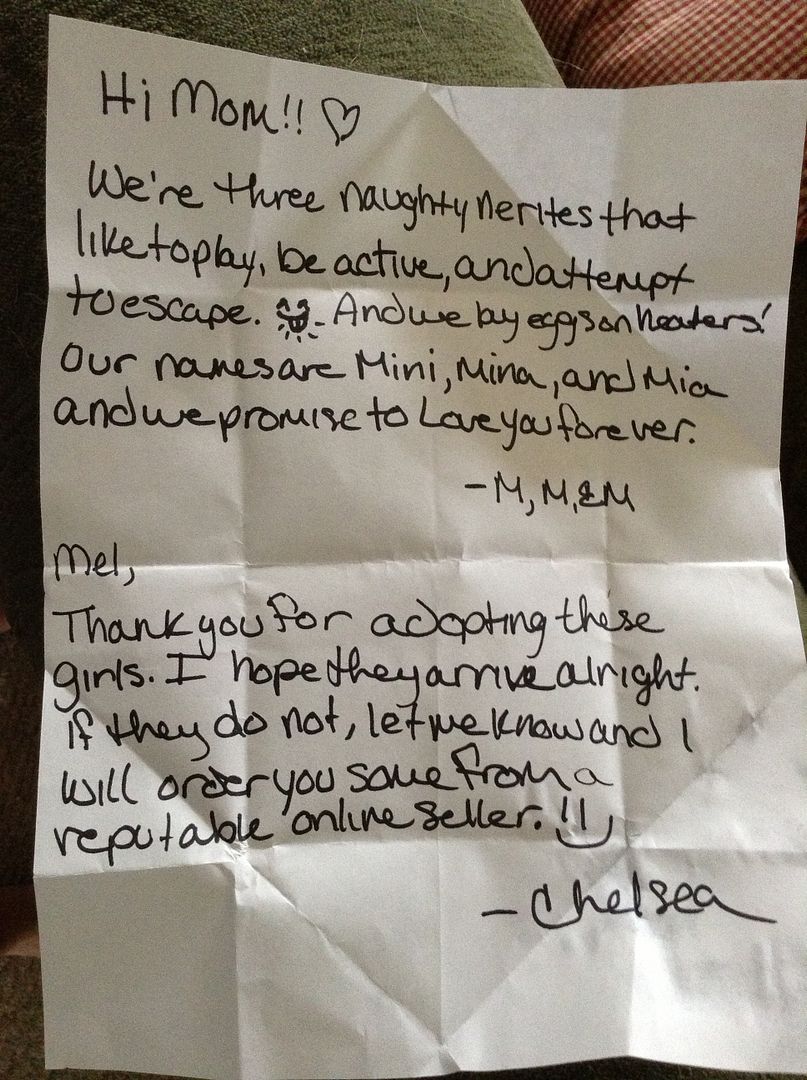 Hi Mom!! ♡
We're three naughty nerites that
like to play, be active, and attempt
to escape. And we lay eggs on heaters!
Our names are Mini, Mina, and Mia
and we promise to Love you forever.
- M, M, & M
Mel,
Thank you for adopting these
girls. I hope they arrive alright.
If they do not, let me know and I
will order you some from a
reputable online seller. !!
- Chelsea